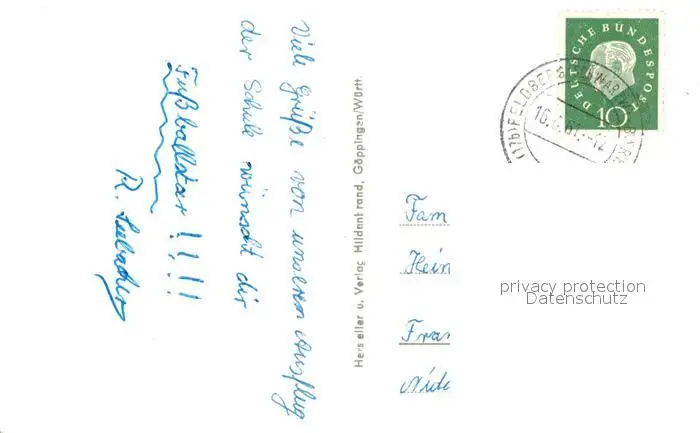 Viele Grüße von unserem Ausflug
der Schule wünscht dir
Fußballstar!!!!
R.
Hersteller u. Verlag Hildenbrand, Göppingen/Württ.
DEUTSCHE BUNDESPOST
10
(17b) FELDBERG
16.6.61.-12
Fam
Hein
Fran
Nide
privacy protection
Datenschutz